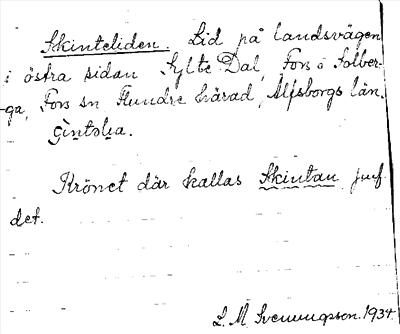 Skinteliden. Lid på landsvägen
i östra sidan Sylte Dal, Fors o Solber-
ga, Fors sn Flundre härad, Älfsborgs län.
Krönet där kallas Skintan jmf.
det.
L. M. Svenungsson. 1934